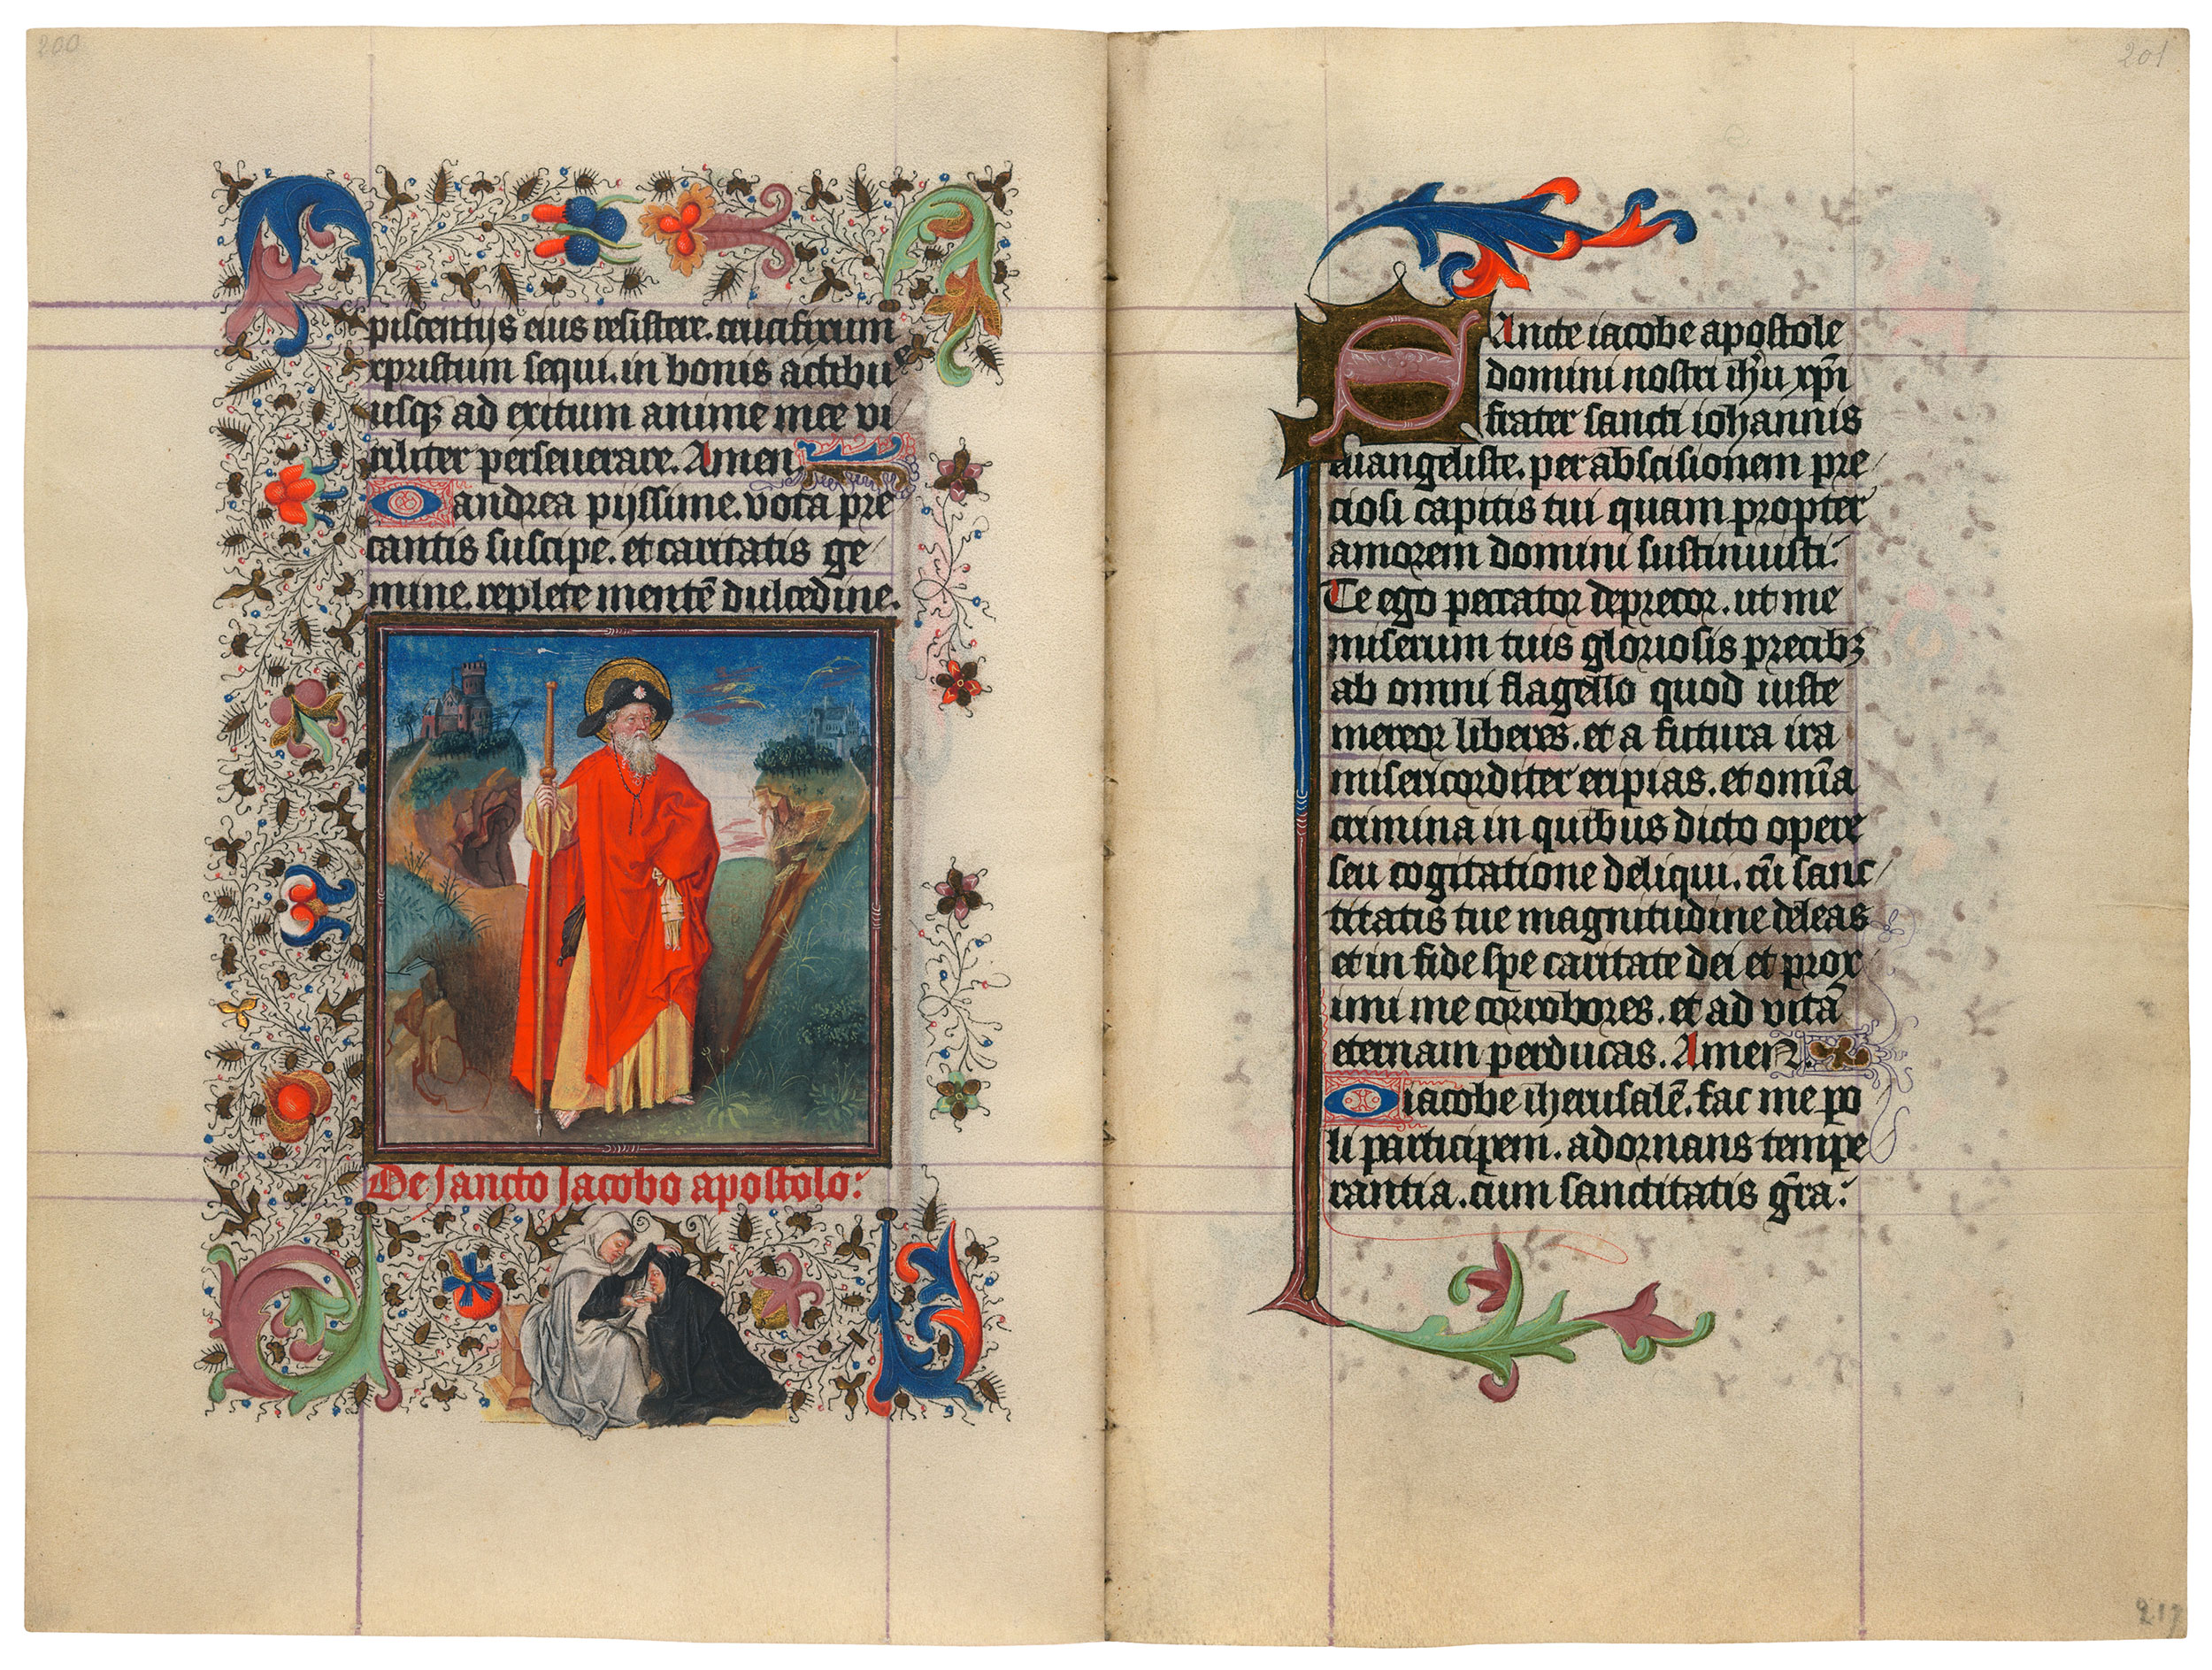 200
piscentijs eius resistere. crucifixum
xpristum sequi. in bonis actibu
usqꝫ ad exitum anime mee vi
riliter perseuerare. Amen
O andrea pijssime. vota pre
cantis suscipe. et caritatis ge
mine. replete mentē dulcedine.
De sancto Jacobo apostolo:
201
SAncte iacobe apostole
domini nostri ihu xpi
frater sancti iohannis
euangeliste. per abscisionem pre
ciosi capitis tui quam propter
amorem domini sustinuisti:
Te ego peccator deprecor. ut me
miserum tuis gloriosis precibꝫ
ab omni flagello quod iuste
mereor liberes. et a futura ira
misericorditer eripias. et omīa
crimina in quibus dicto opere
seu cogitatione deliqui. cū sanc
titatis tue magnitudine deleas
et in fide spe caritate dei et prox
imi me corrobores. et ad vitā
eternam perducas. Amen.
O iacobe iherusalē. fac me po
li participem. adornans tempe
rantia. cum sanctitatis gr̄a:
217